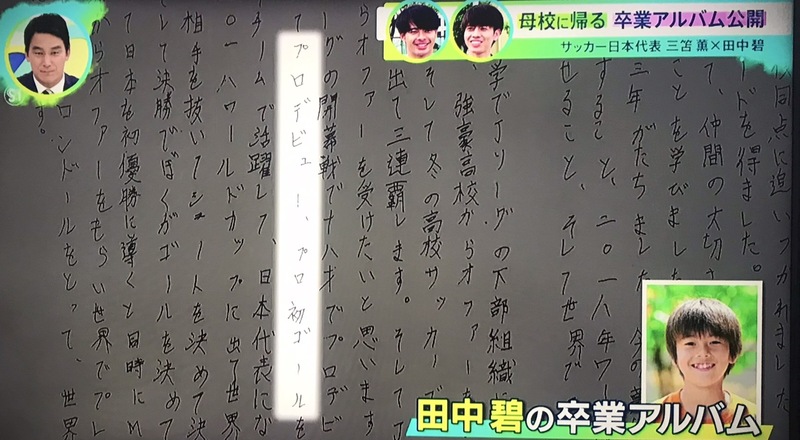 母校に帰る 卒業アルバム公開
サッカー日本代表 三笘 薫×田中 碧
同点に追いつかれました
ドを得ました。
て、仲間の大切さ
ことを学びました
三年がたちました
すること、二〇一八年ワー
せること、そして世界で
学でJリーグの下部組織に
強豪高校からオファーを
そして冬の高校サッカーで
出て三連覇します。そして
らオファーを受けたいと思います
ーグの開幕戦で十八才でプロデビ
てプロデビュー!、プロ初ゴールを
チームで活躍して、日本代表にな
〇一八ワールドカップに出て世界
相手を抜いてシュートを決めて決
して決勝でぼくがゴールを決めて
て日本を初優勝に導くと同時にM
からオファーをもらい世界でプレ
ロンドールをとって、世界
す。
田中 碧の卒業アルバム